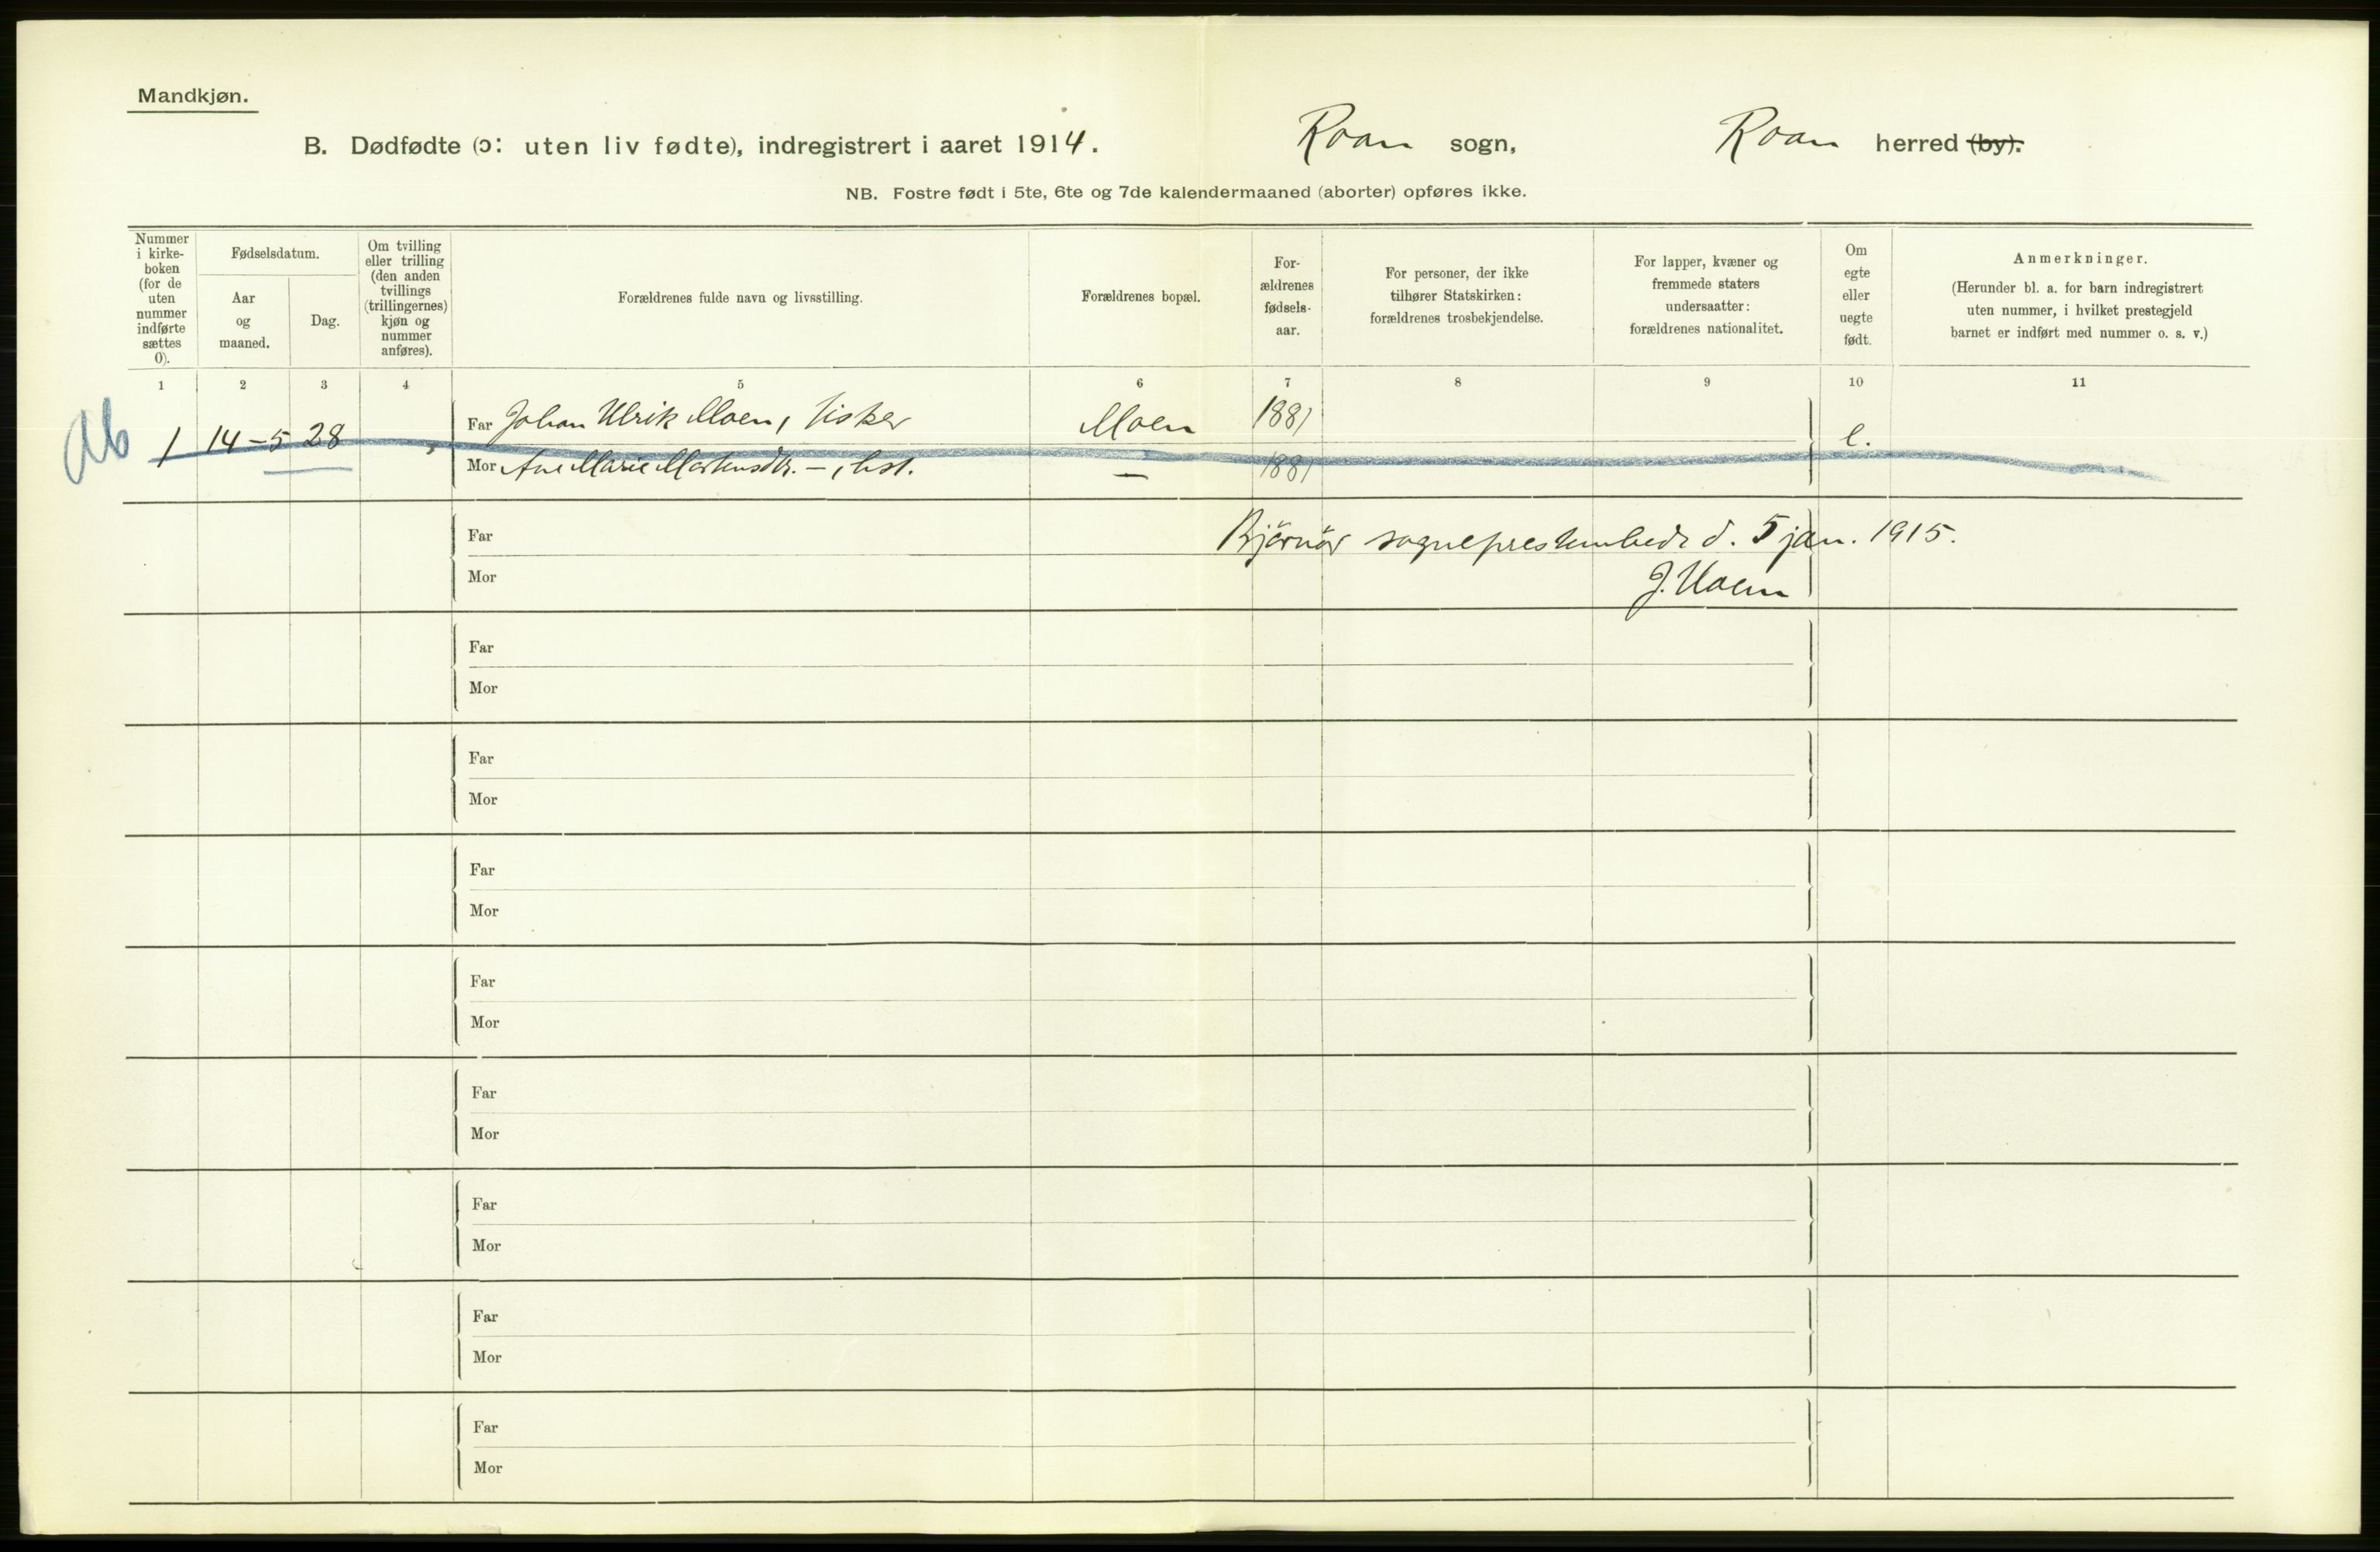 Mandkjøn.
B. Dødfødte (ɔ: uten liv fødte), indregistrert i aaret 1914. Roan sogn, Roan herred (by).
NB. Fostre født i 5te, 6te og 7de kalendermaaned (aborter) opføres ikke.
Nummer i kirke-boken (for de uten nummer indførte sættes 0).
Fødselsdatum.
Aar og maaned.
Dag.
Om tvilling eller trilling (den anden tvillings (trillingernes) kjøn og nummer anføres).
Forældrenes fulde navn og livsstilling.
Forældrenes bopæl.
For-ældrenes fødsels-aar.
For personer, der ikke tilhører Statskirken: forældrenes trosbekjendelse.
For lapper, kvæner og fremmede staters undersaatter: forældrenes nationalitet.
Om egte eller uegte født.
Anmerkninger.
(Herunder bl. a. for barn indregistrert uten nummer, i hvilket prestegjeld barnet er indført med nummer o. s. v.)
1 2 3 4 5 6 7 8 9 10 11
Ab 1 14-5 28 Far Johan Ulrik Moen, fisker Moen 1881 e.
Mor Ane Marie Mortensdtr. —, hst. — 1881
Far Bjørnör sogneprestembede d. 5 jan. 1915.
Mor
Far
Mor
Far
Mor
Far
Mor
Far
Mor
Far
Mor
Far
Mor
Far
Mor
Far
Mor